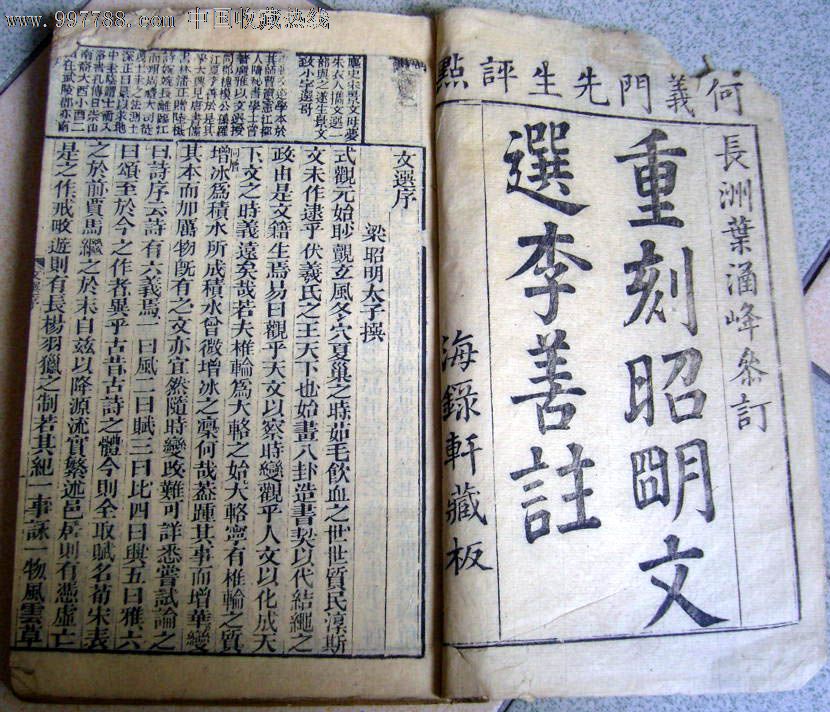 www.997788.com 中国收藏热线
何義門先生評點
長洲葉涵峰參訂
重刻昭明文
選李善註
海錄軒藏板
朱衣人攜文選一
部與之遂生景文
故小字選哥
文選序
梁昭明太子撰
式觀元始眇覿玄風冬穴夏巢之時茹毛飲血之世世質民淳斯
文未作逮乎伏羲氏之王天下也始畫八卦造書契以代結繩之
政由是文籍生焉易曰觀乎天文以察時變觀乎人文以化成天
下文之時義遠矣哉若夫椎輪為大輅之始大輅寧有椎輪之質
增冰為積水所成積水曾微增冰之凜何哉蓋踵其事而增華變
其本而加厲物既有之文亦宜然隨時變改難可詳悉嘗試論之
曰詩序云詩有六義焉一曰風二曰賦三曰比四曰興五曰雅六
曰頌至於今之作者異乎古昔古詩之體今則全取賦名荀宋表
之於前賈馬繼之於末自茲以降源流實繁述邑居則有憑虛亡
是之作戒畋遊則有長楊羽獵之制若其紀一事詠一物風雲草